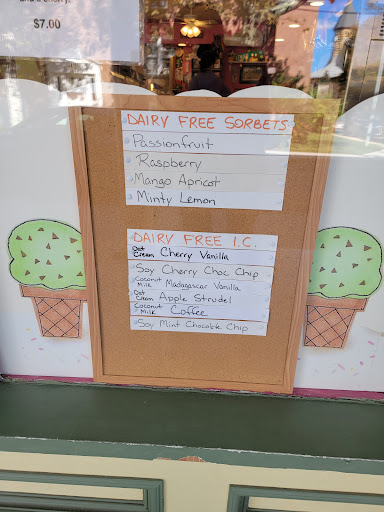 and a cherry.
$7.00
DAIRY FREE SORBETS
Passionfruit
Raspberry
Mango Apricot
Minty Lemon
DAIRY FREE I.C.
Oat Cream Cherry Vanilla
Soy Cherry Choc Chip
Coconut Milk Madagascar Vanilla
Oat Cream Apple Strudel
Coconut Milk Coffee
Soy Mint Chocolate Chip